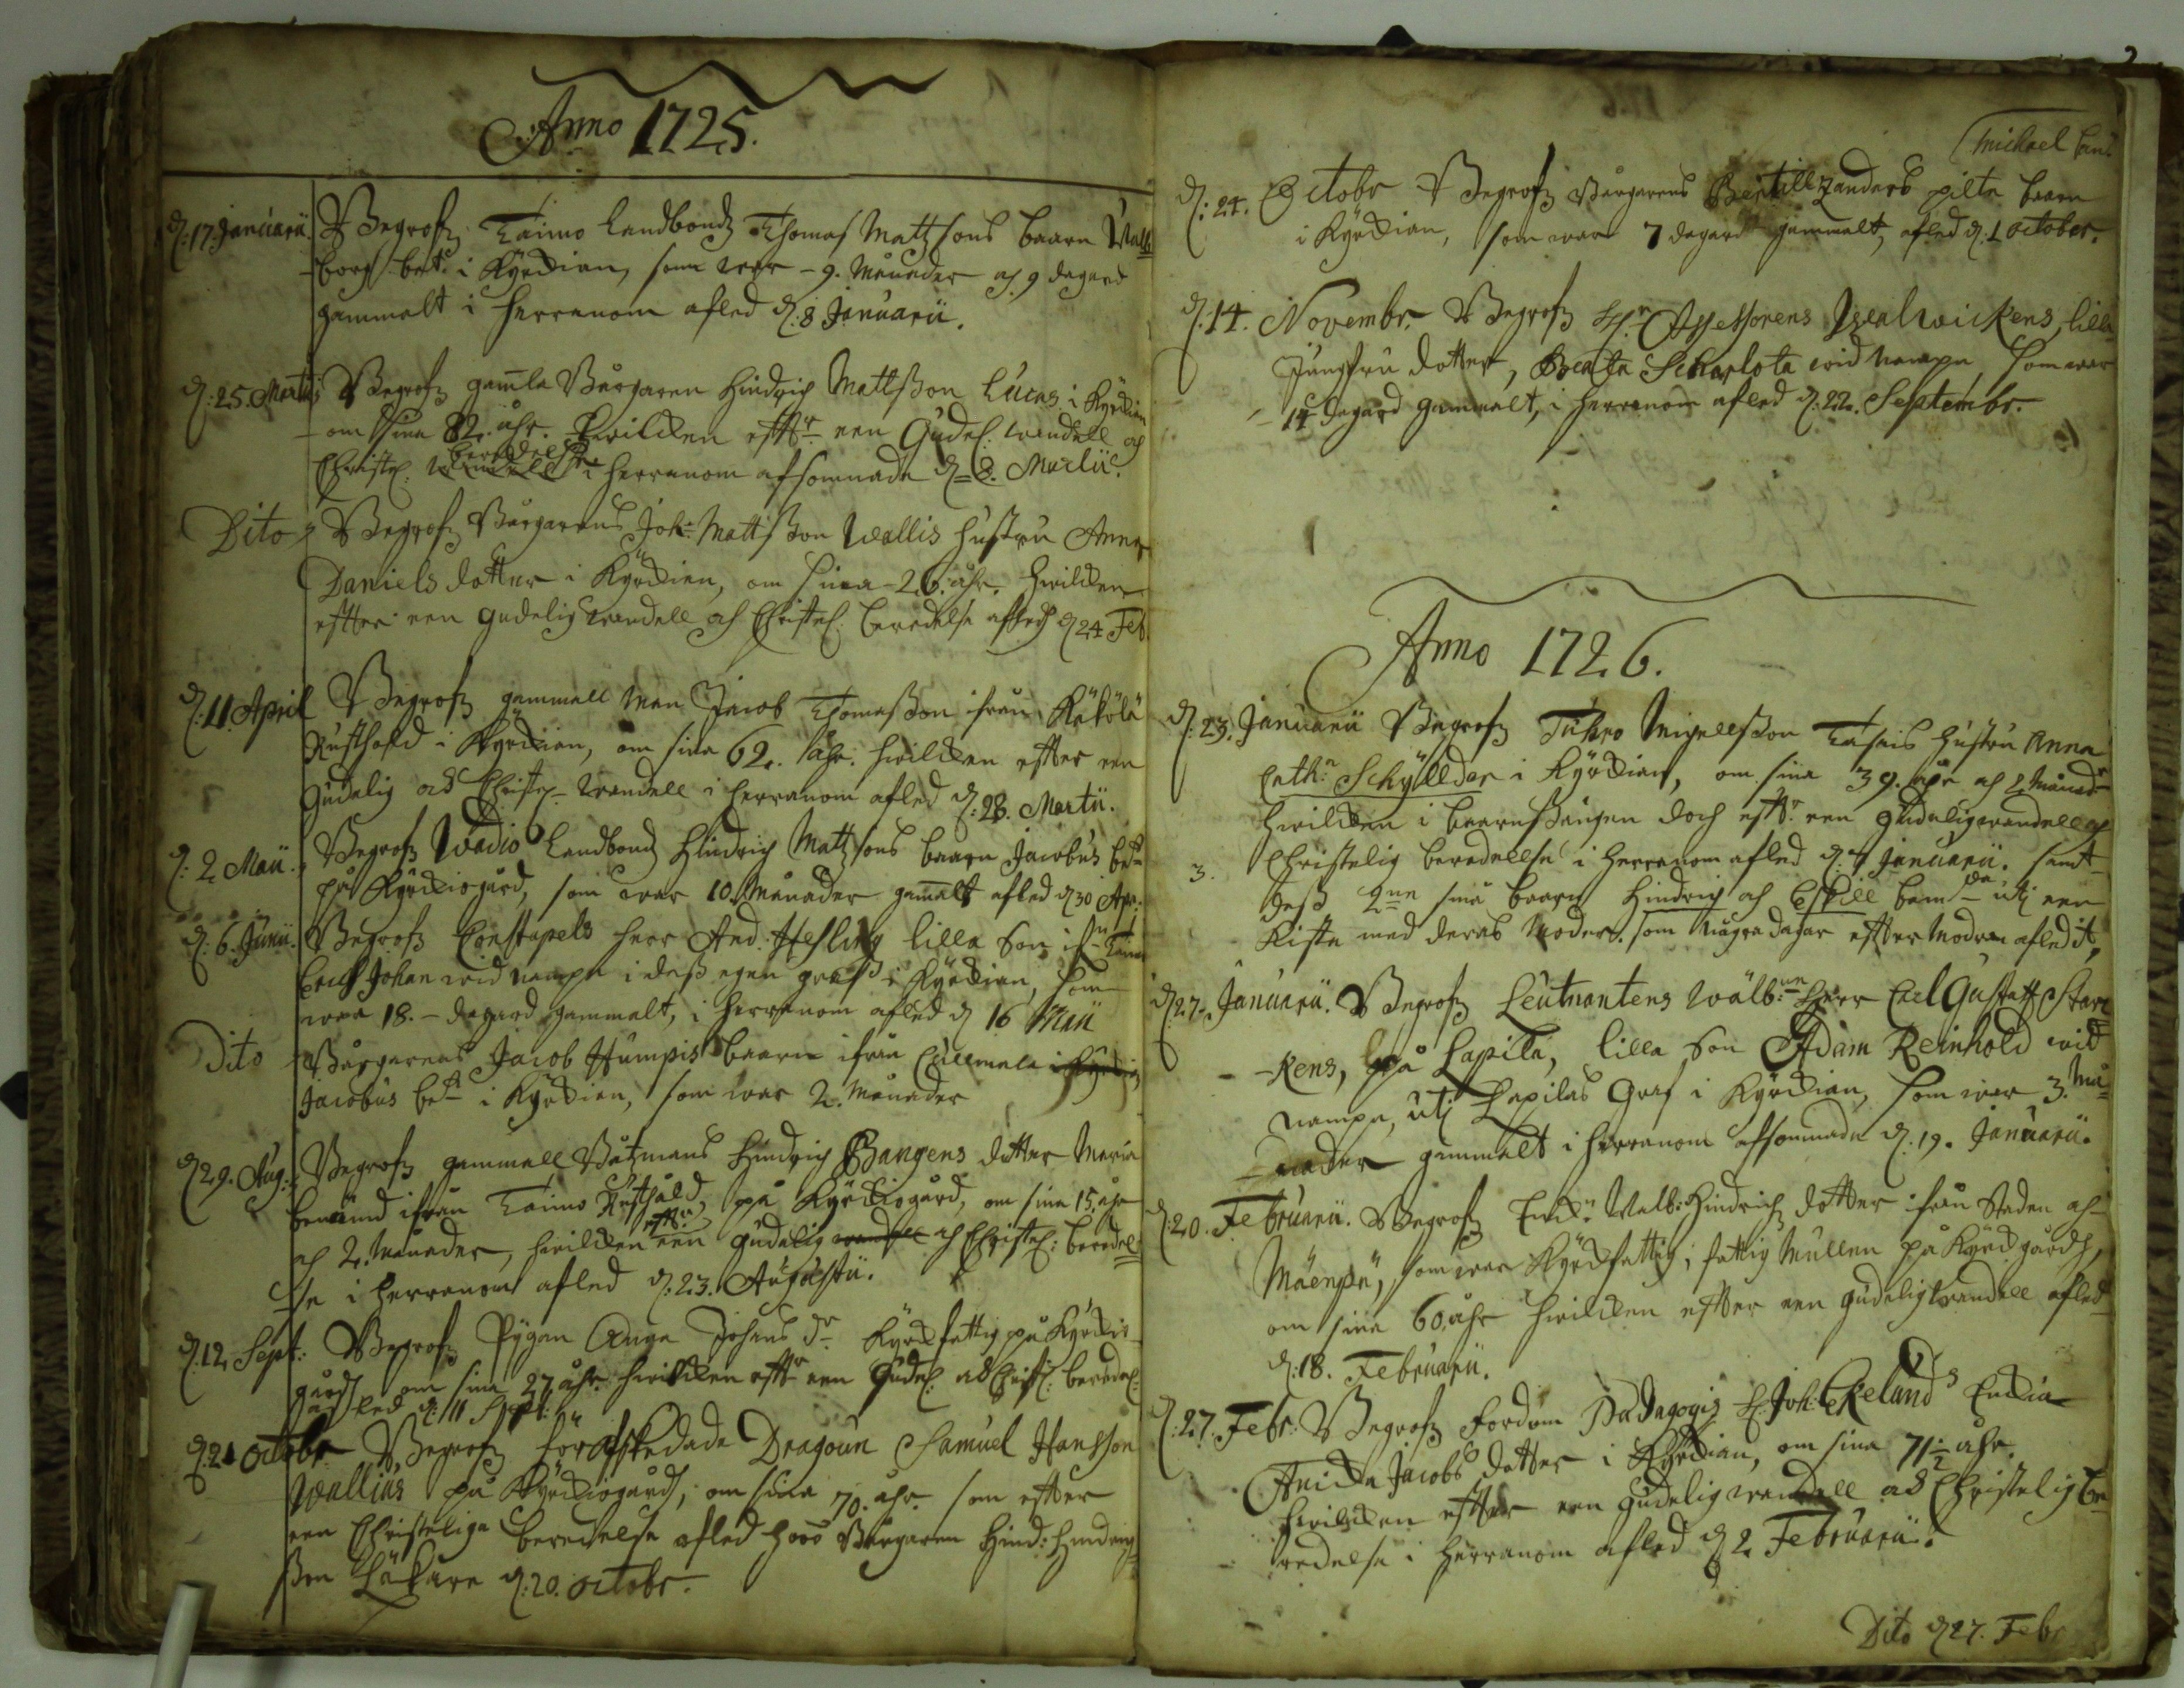 Anno 1725.
d. 17. Januarii. Begrofs Taimo Landbonds Thomas Mattsons baarn Wall
borg bet. i Kyrckian, som war 9. Månader och 9 dagard
gammalt i herranom afled d. 8 Januarii.
d. 25. Martii Begrofs gamla Borgaren Hindrich Mattsson Lucas i Kyrckian
om sina 82. åhr. hwilcken efftr een Gudel. wandell och
Christel. beredelse i herranom afsomnade d. 8. Martii.
Dito Begrofs Borgarens Joh: Mattsson Wallis hustru Anna
Daniels dotter i Kyrckian, om sina 26. åhr. hwilcken
effter een gudelig wandell och Christel. beredelse afled d 24 Feb.
d. 11. April Begrofs gammall Man Jacob Thomasson ifrån Kåkölä
Rusthold i Kyrckian, om sina 62. åhr. hwilcken effter een
Gudelig och Christel. wandell i herranom afled d. 28. Martii.
d. 2. Maii. Begrofs Wadio Landbond Hindrich Mattsons baarn Jacobus bet
på Kyrckiogård, som war 10. Månader gammalt afled d 30 Apr:
d. 6. Junii. Begrofs Constapels herr And. Hesling lilla Son
Erich Johan wid nampn i dess egen graf i Kyrckian, som
war 18. dagard gammalt, i herranom afled d 16 Maii
Dito Borgarens Jacob Humpis baarn ifrån Cullmala
Jacobus bet i Kyrckian, som war 2. Månader
d 29. Aug: Begrofs gammall Båtzmans Hindrich Bangens dotter Maria
benämd ifrån Taimo Rusthåld, på Kyrckiogård, om sina 15. åhr
och 2. Månader, hwilcken efftr een gudelig wandell och Christel: beredel
se i herranom afled d. 23. Augustii.
d. 12. Sept: Begrofs Pygan Johans dr Kyrckfattig på Kyrckio
gård om sina 27 åhr hwilcken efftr een Gudel. och Christl. beredel
afled d. 11 Sept:
d. 21 octobr Begrofs för afskedade Dragoun Samuel Hansson
Wallius på Kyrckiogård, om sina 70. åhr. som effter
een Christeliga beredelse afled hoos Borgaren Hind: Hindrich
sson d. 20. octobr.
Michael
d. 24. Octobr Begrofs Borgarens Bertill Zanders pilte baarn
i Kyrckian, som war 7 dagard gammalt, afled d. 1 october.
d. 14. Novembr. Begrofs Hr Assessorens lilla
Jungfru dotter, Beata Scharlota wid nampn som war
14 dagard gammalt, i herranom afled d. 22. Septembr.
Anno 1726.
d. 23. Januarii Begrofs Tuhro Michellsson Tasais hustru Anna
Cath: Schyllder i Kyrckian, om sina 39. åhr och 2 Månadr
hwilcken i baarnsängen doch efftr een gudelig wandell och
3. Christelig beredelse i herranom afled d. 7 Januarii. samt
dess 2ne små baarn Hindrich och Eskill uti een
Kista med deras Moder. som några dagar effter Modren afledit,
d 27. Januarii. Begrofs Leutnantens wälb:ne Herr Carl Gustaff Star
kens, på Lapila, lilla Son Adam Reinhold wid
nampn, uti Lapilas Graf i Kyrckian, som war 3. Må
nader gammalt i herranom afsomnade d. 19. Januarii.
d. 20. Februarii. Begrofs Enck: Walb: Hindrichs dotter ifrån Staden och
Mäenpä, som war Kyrckfattig, i fattig Mullen på Kyrckgård,
om sina 60. åhr hwilcken effter een gudelig wandell afled
d. 18. Februarii.
d. 27. Febr: Begrofs Fordom Pædagogis H. Joh: Ekelunds Enckia
Anicka Jacobs dotter i Kyrckian, om sina 71 1/2 åhr.
hwilcken effter een gudelig wandell och Christelig be
redelse i herranom afled d 2 Februarii.
Dito d 27. Febr